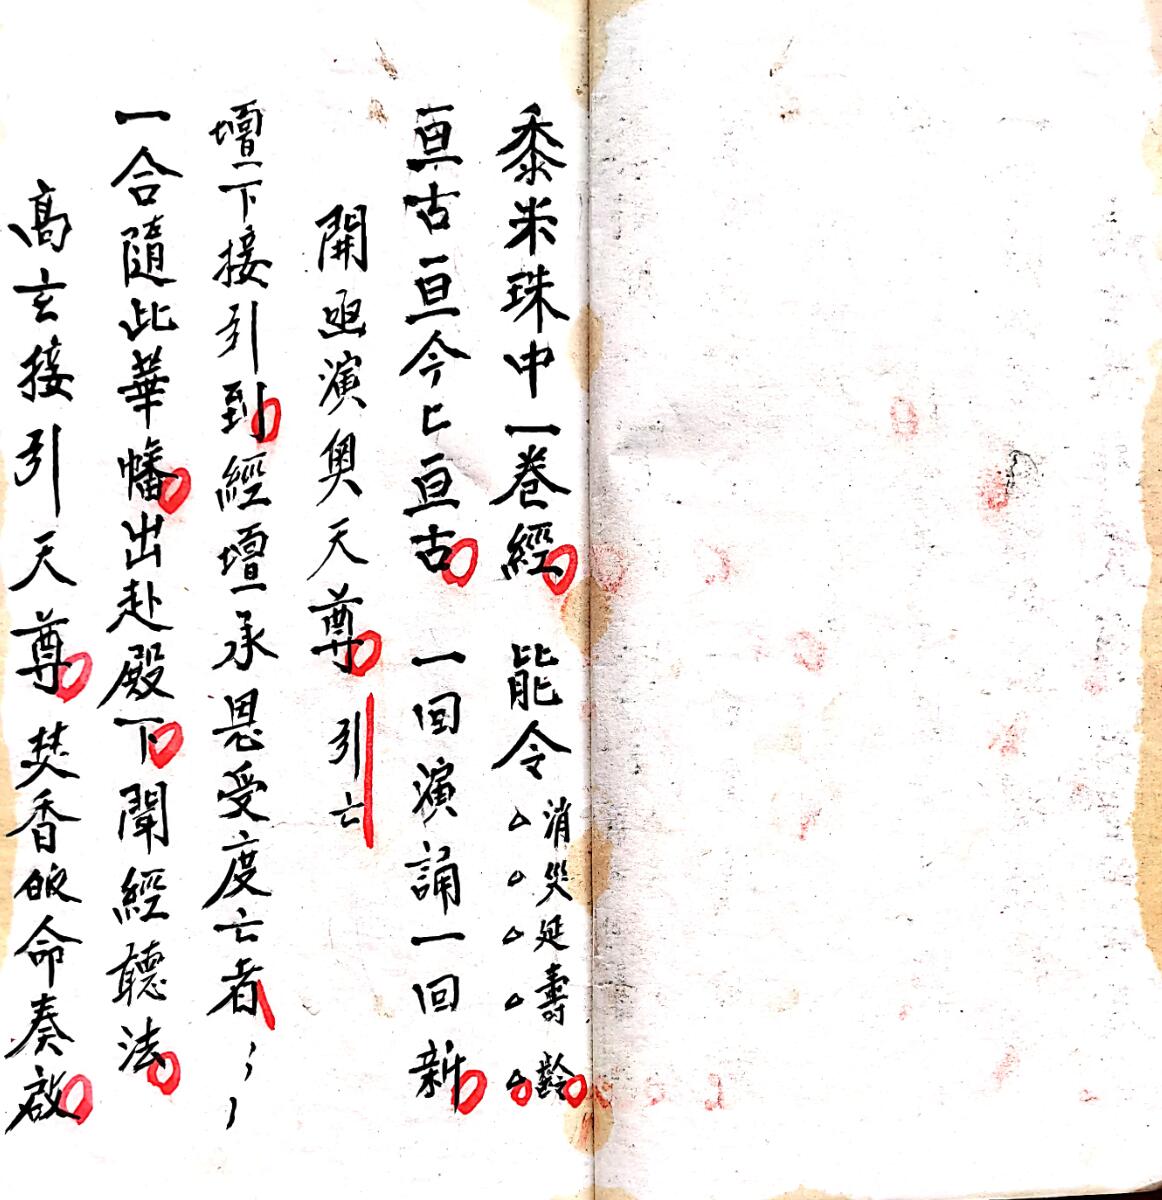 黍米珠中一卷經 能令消災延壽齡
亘古亘今匕亘古 一回演誦一回新
開函演奧天尊 引亡
壇下接引到經壇承恩受度亡者
一合隨此華幡出赴殿下聞經聽法
高玄接引天尊焚香皈命奏啟